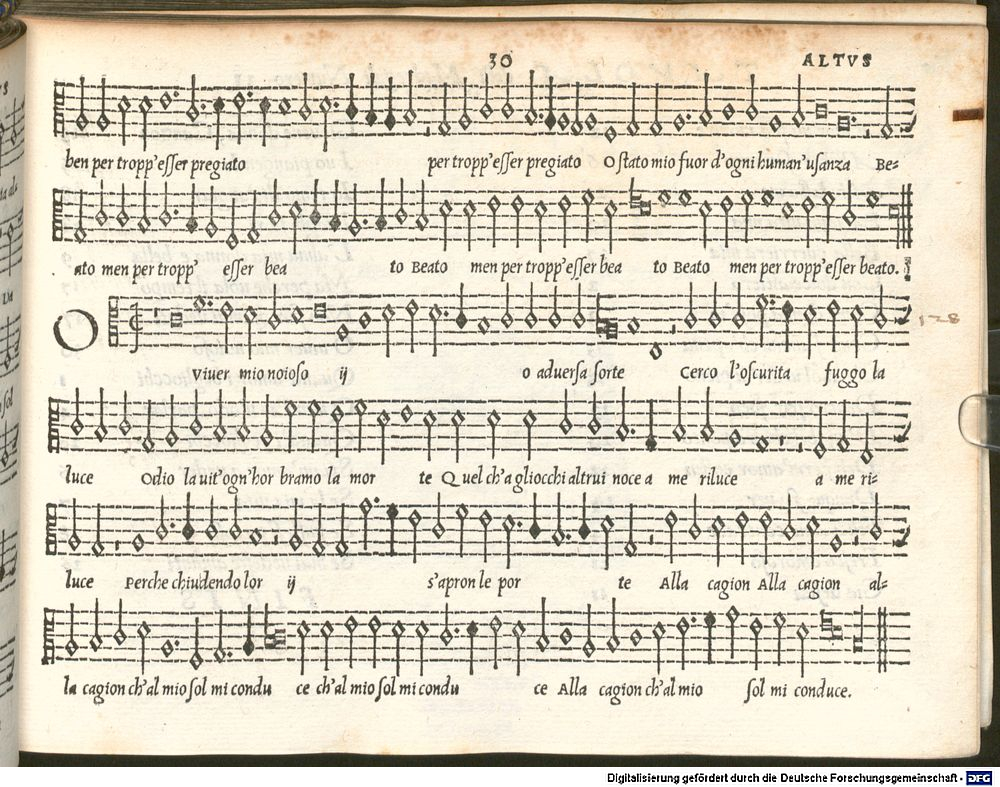 30 ALTVS
ben per tropp'esser pregiato per tropp'esser pregiato O stato mio fuor d'ogni human'usanza Be-
ato men per tropp' esser bea to Beato men per tropp'esser bea to Beato men per tropp'esser beato.
O Viuer mio noioso ij o aduersa sorte Cerco l'oscurita fuggo la
128
luce Odio la uit'ogn'hor bramo la mor te Quel ch'a gliocchi altrui noce a me riluce a me ri-
luce Perche chiudendo lor ij s'apron le por te Alla cagion Alla cagion al-
la cagion ch'al mio sol mi condu ce ch'al mio sol mi condu ce Alla cagion ch'al mio sol mi conduce.
Digitalisierung gefördert durch die Deutsche Forschungsgemeinschaft - DFG